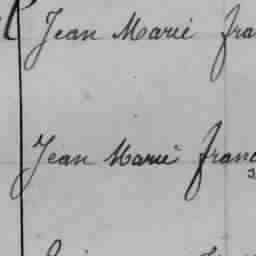 Jean Marie fra
Jean Marie franc